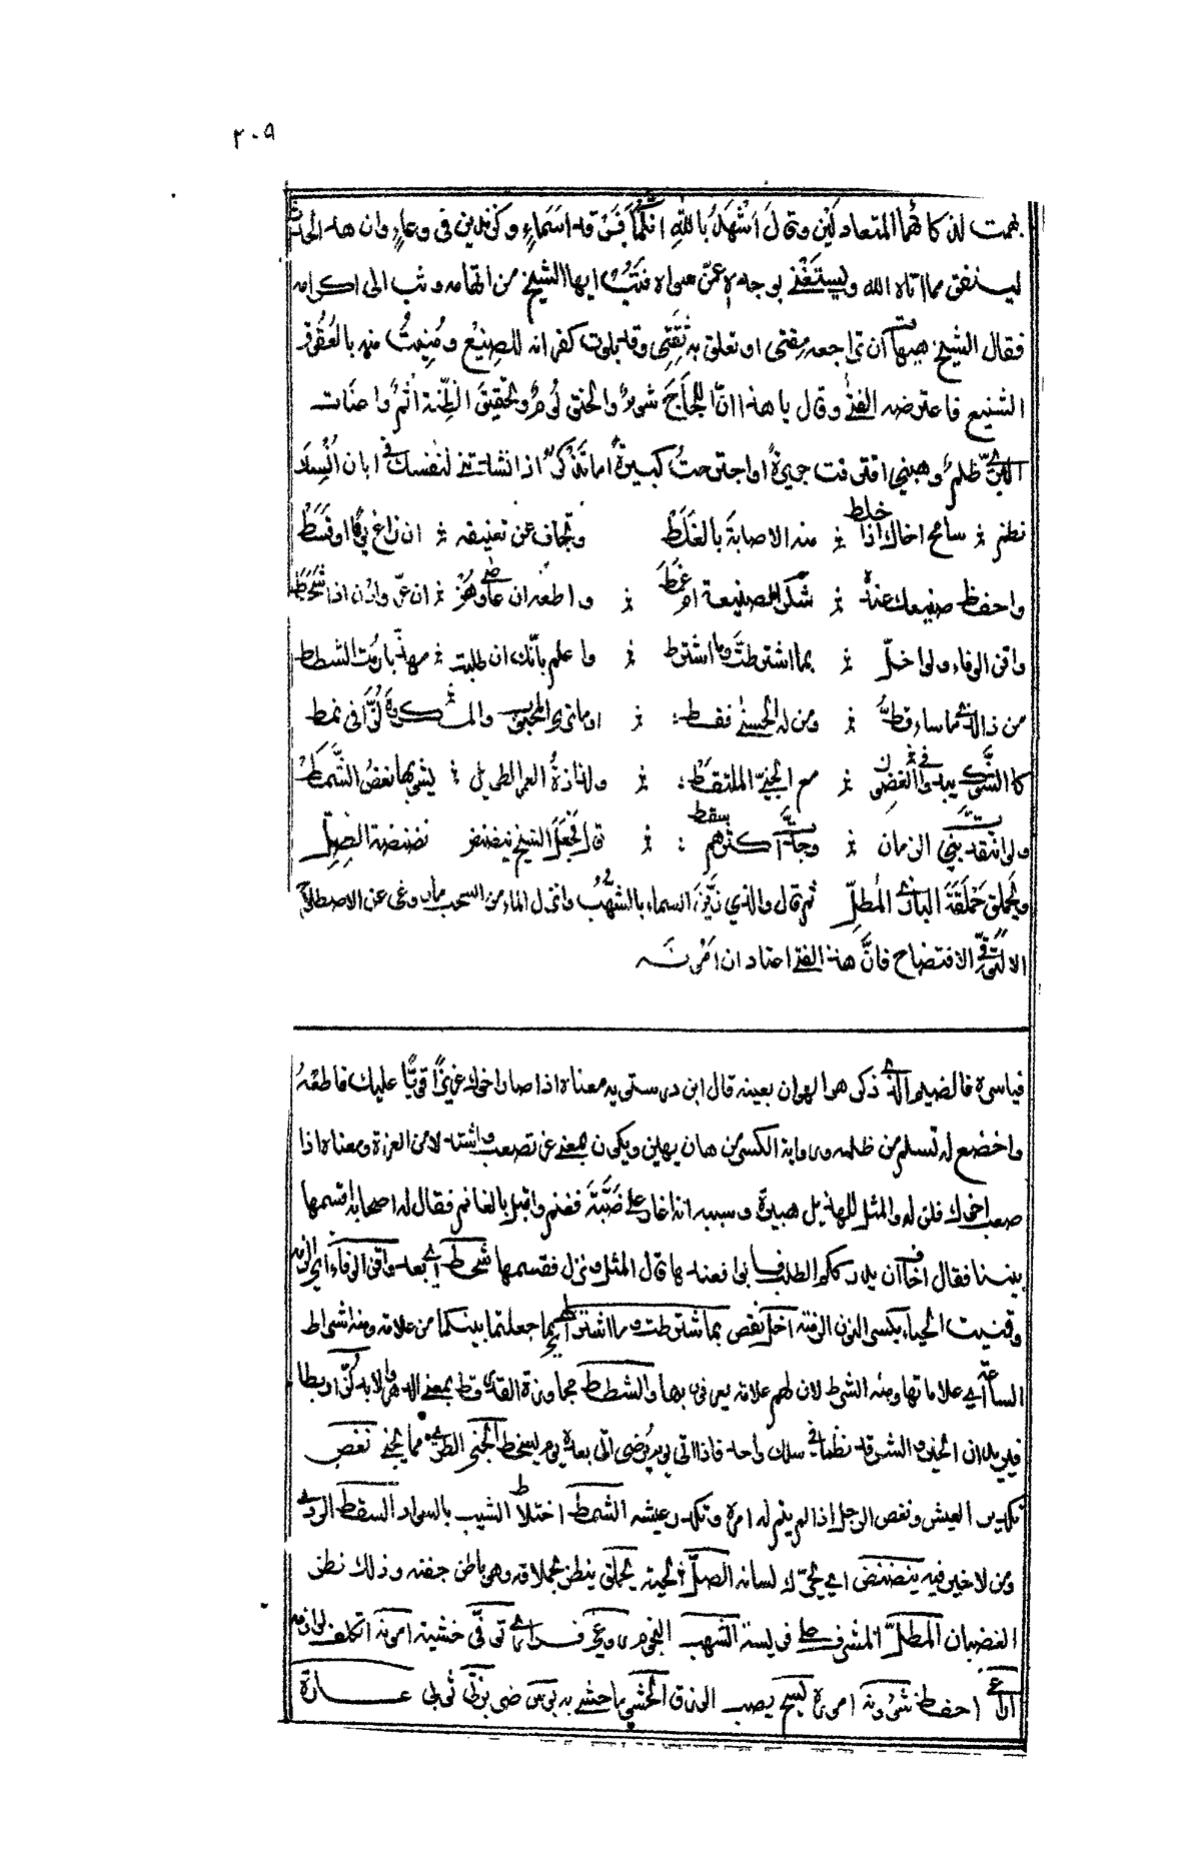 ٣٠٩
فهمت لذكائهما المتعادلين وقال اشهد بالله انكما فرقدا سماء وكزندين في وعاء وان هذا الحدث
لينفق مما اتاه الله ويستغني بوجده عمن سواه فتب ايها الشيخ من اتهامه وثب الى اكرامه
فقال الشيخ هيهات ان تراجعه مقتي او تعلق به ثقتي وقد بلوت كفرانه للصنيع ومنيت منه بالعقوق
الشنيع فاعترضه الفتى وقال يا هذا ان اللجاج شوم والحنق لوم وتحقيق الظنة اثم واعنات
البري ظلم وهبني اقترفت جريرة او اجترحت كبيرة اما تذكر اذ انشدتني لنفسك في ابان انسك
نظم سامح اخاك اذا خلط منه الاصابة بالغلط وتجاف عن تعنيفه ان زاغ يوما او قسط
واحفظ صنيعك عنده شكر الصنيعة ام غمط واطعه ان عاصى وهن ان عز وادن اذا شحط
واقن الوفاء ولو اخل بما اشترطت وما اشترط واعلم بانك ان طلبت مهذبا رمت الشطط
من ذا الذي ما ساء قط ومن له الحسنى فقط او ما ترى المحبوب والمكروه لزا في نمط
كالشوك يبدو في الغصون مع الجني الملتقط ولذاذة العمر الطويل يشوبها نغص الشمط
ولو انتقدت بني الزمان وجدت اكثرهم سقط قال فجعل الشيخ ينضنض نضنضة الصل
ويحملق حملقة البازي المطل ثم قال والذي زين السماء بالشهب وانزل الماء من السحب ما روغي عن الاصطلاح
الا لتوقي الافتضاح فان هذا الفتى اعتاد ان امونه
قياسره فالضيم الذي ذكر هو الهوان بعينه قال ابن درستويه معناه اذا صار اخوك عزيزا قويا عليك فاطعه
واخضع له تسلم من ظلمه ورواية الكسر من هان يهين ويكون بمعنى عز تصعب واشتد لا من العزة ومعناه اذا
صعب اخوك فلن له والمثل للهذيل هبيرة وسببه انه اغار على ضبة فغنم واقبل بالغنائم فقال له اصحابه اقسمها
بيننا فقال اخاف ان يدرككم الطلب فابوا فعندها قال المثل ونزل فقسمها شحط اي بعد واقن الوفاء اي الزمه
وقنيت الحياء بكسر النون الزمته اخل نقص بما اشترطت وما اشترط اي بما جعلتما بينكما من علامة ومنه اشراط
الساعة اي علاماتها ومنه الشرط لان لهم علامة يعرفون بها والشطط مجاوزة القدر
فيريد ان الخير والشر قد نظما في سلك واحد فاذا اتى يوم يرضي اتى بعده يوم يسخط الجني الطري مما يجنى نغص
تكدير العيش ونغص الرجل اذا لم يتم له امره وتكدر عيشه الشمط اختلاط الشيب بالسواد السقط الردي
ومن لا خير فيه ينضنض اي يحرك لسانه الصل الحية يحملق ينظر بحملاقه وهو باطن جفنه وذلك نظر
الغضبان المطل المشرف على فريسته الشهب النجوم روغي فراري توقي خشية امونه اتكلف لوازمه
اراعي احفظ شؤونه اموره يسح يصب الرزق